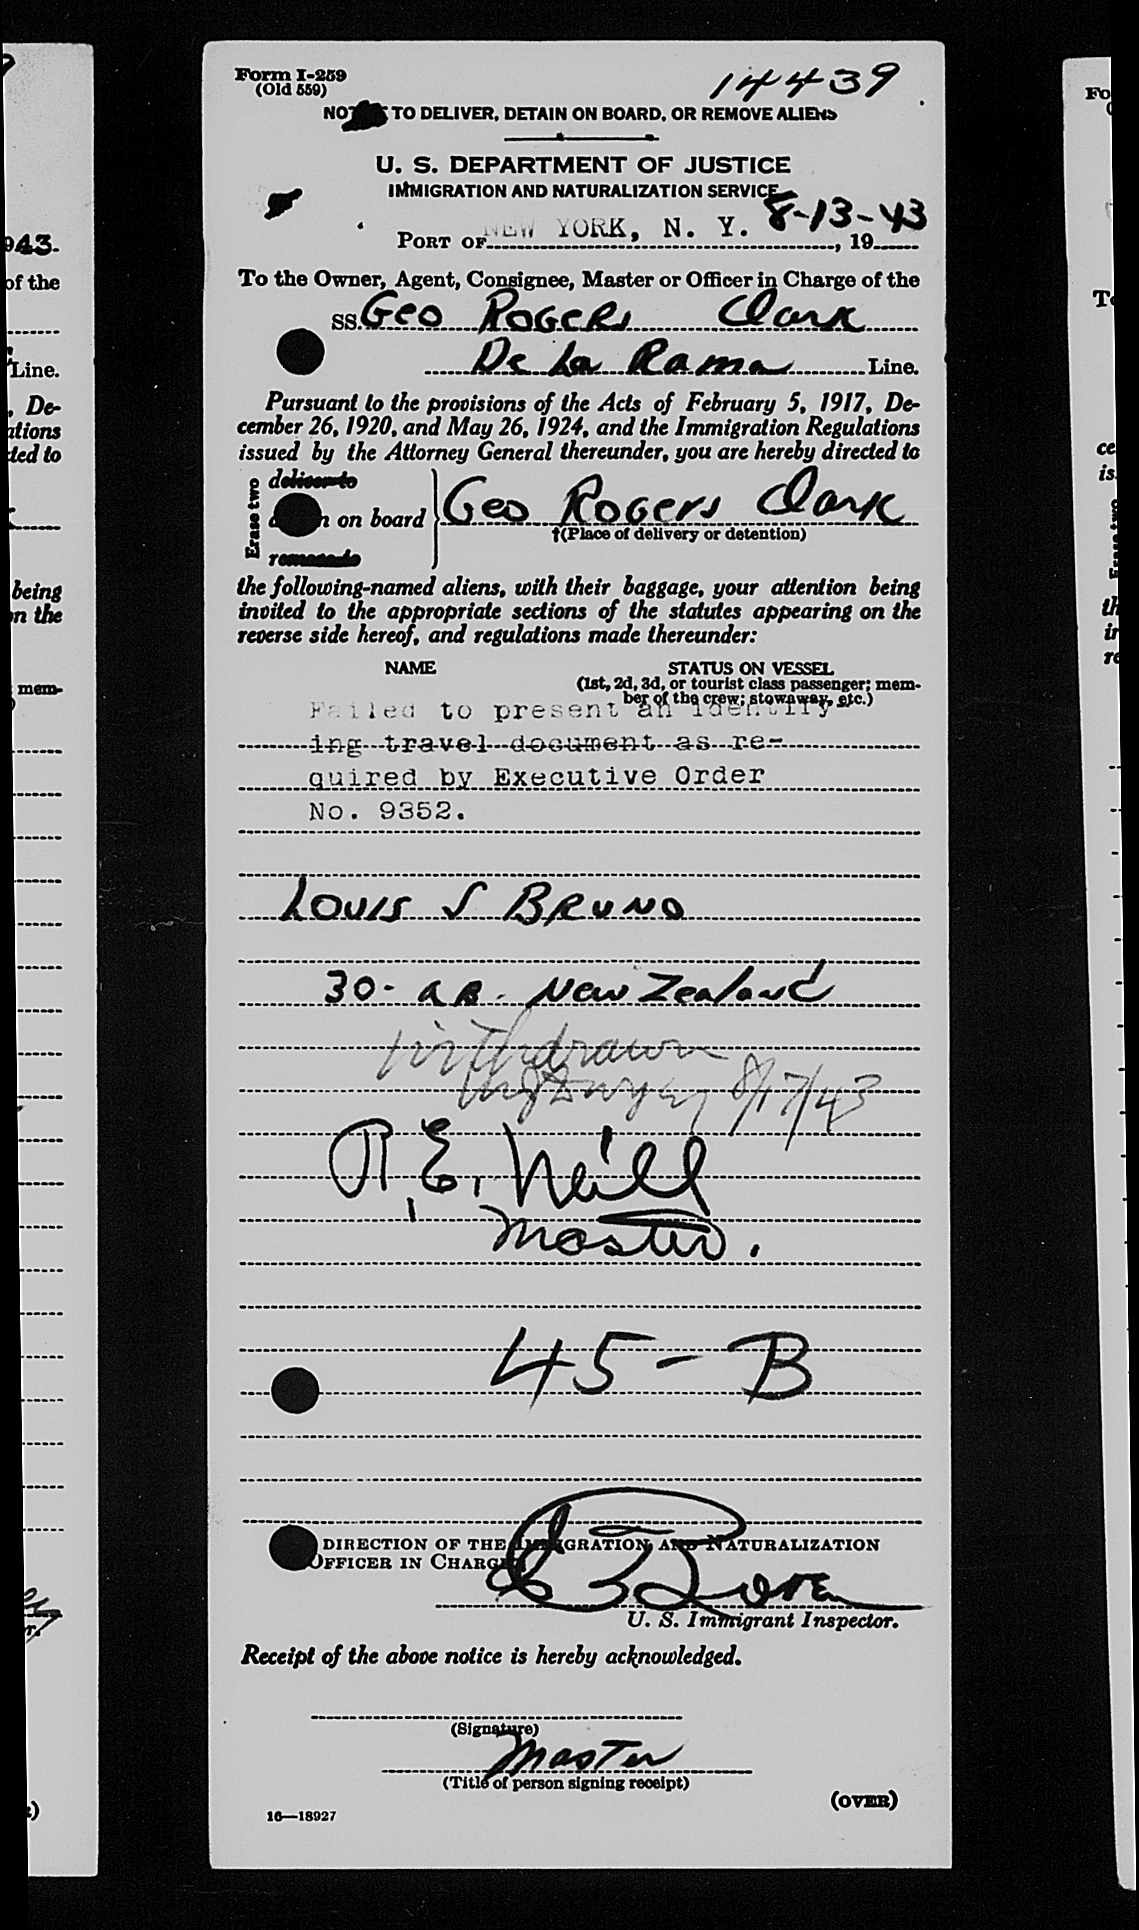 Form I-259
(Old 559)
14439
TO DELIVER, DETAIN ON BOARD, OR REMOVE ALIENS
U. S. DEPARTMENT OF JUSTICE
IMMIGRATION AND NATURALIZATION SERVICE
PORT OF NEW YORK, N. Y. 8-13-43, 19
To the Owner, Agent, Consignee, Master or Officer in Charge of the
SS. Geo Rogers Clark
De La Rama Line.
Pursuant to the provisions of the Acts of February 5, 1917, De-
cember 26, 1920, and May 26, 1924, and the Immigration Regulations
issued by the Attorney General thereunder, you are hereby directed to
Erase two
deliver to
on board Geo Rogers Clark
†(Place of delivery or detention)
the following-named aliens, with their baggage, your attention being
invited to the appropriate sections of the statutes appearing on the
reverse side hereof, and regulations made thereunder:
NAME STATUS ON VESSEL
(1st, 2d, 3d, or tourist class passenger; mem-
ber of the crew; stowaway, etc.)
Failed to present an identify-
ing travel document as re-
quired by Executive Order
No. 9352.
Louis S Bruno
30- AB- New Zealand
Withdrawn
8/17/43
R. E. Neill
Master.
45-B
DIRECTION OF THE IMMIGRATION AND NATURALIZATION
OFFICER IN CHARGE
U. S. Immigrant Inspector.
Receipt of the above notice is hereby acknowledged.
(Signature)
Master
(Title of person signing receipt)
(OVER)
16—18927
943.
of the
Line.
, De-
ations
cted to
being
on the
mem-